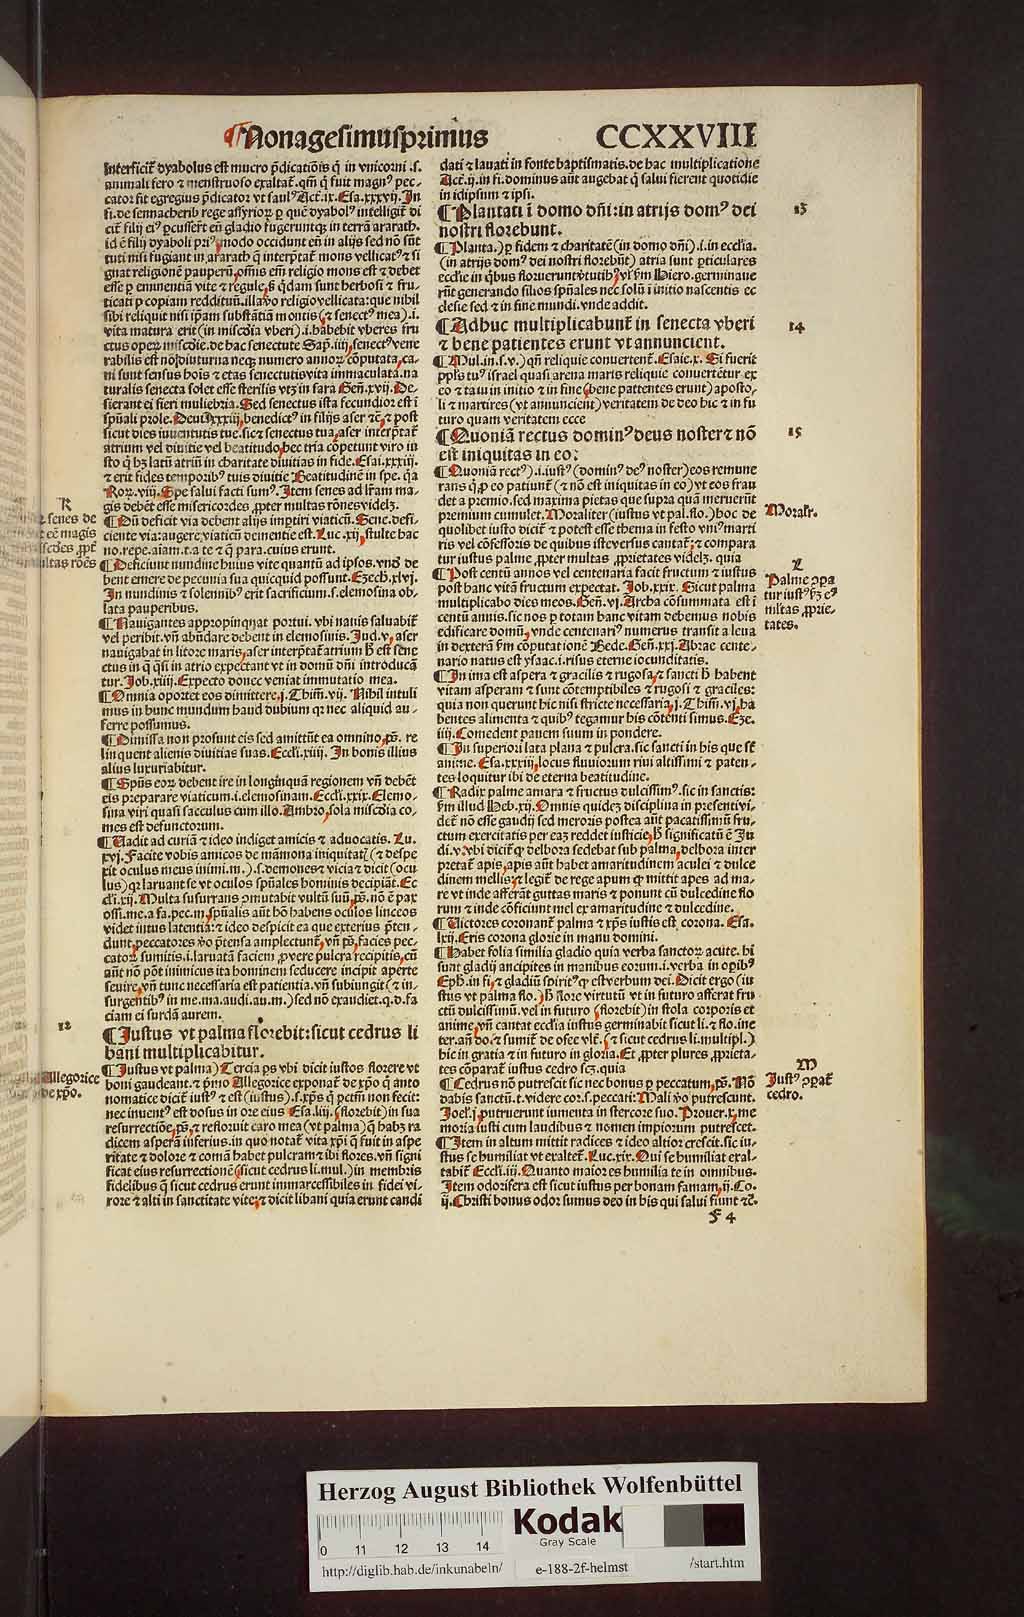 Nonagesimusprimus CCXXVIII
Interficit᷑ dyabolus est mucro p̄dicatiōis q̄ in vnicorni .s.
animali fero ⁊ menstruoso exaltat᷑. qm̄ q̄ fuit magnꝰ pec-
cator fit egregius p̄dicator vt saulꝰ Act. ix. Esa. xxxvij. In
fi. de sennacherib rege assyrioꝝ ꝑ quē dyabolꝰ intelligit᷑ di
cit᷑ filij eiꝰ ꝑcusserūt eū gladio fugeruntqꝫ in terrā ararath.
id ē filij dyaboli priꝰ, modo occidunt eū in alijs sed nō sūt
tuti nisi fugiant in ararath q̄ interp̄tat᷑ mons vellicatꝰ ⁊ si
gnat religionē pauperū, om̄is em̄ religio mons est ⁊ debet
esse ꝑ eminentiā vite ⁊ regule, sꝫ q̄dam sunt herbosi ⁊ fru-
ticati ꝑ copiam reddituū. illa vo religio vellicata: que nihil
sibi reliquit nisi ip̄am substātiā montis (⁊ senectꝰ mea) .i.
vita matura erit (in miscd̄ia vberi) .i. habebit vberes fru
ctus opeꝝ miscd̄ie. de hac senectute Sap. iiij, senectꝰ vene
rabilis est nō diuturna neqꝫ numero annoꝝ cōputata, ca-
ni sunt sensus hois ⁊ etas senectutis vita immaculata. na
turalis senecta solet esse sterilis vtꝫ in sara Gen̄. xvij. De-
sierant ei fieri muliebria. Sed senectus ista fecundior est ī
sp̄uali prole. Deut. xxxiij, benedictꝰ in filijs aser ⁊c̄, ⁊ post
sicut dies iuuentutis tue. sic ⁊ senectus tua, aser interp̄tat᷑
atrium vel diuitie vel beatitudo, hec tria cōpetunt viro iu
sto q̄ hꝫ latū atriū in charitate diuitias in fide. Esai. xxxiij.
⁊ erit fides temporibꝰ tuis diuitie Beatitudinē in spe. q̄a
Roꝝ. viij. Spe salui facti sumꝰ. Item senes ad lr̄am ma-
gis debēt esse misericordes, ꝓpter multas rōnes videlꝫ.
¶ Qn̄ deficit via debent alijs imꝑtiri viaticū. Sene. defi-
ciente via: augere viaticū dementie est. Luc. xij, stulte hac
no. repe. aīam. t. a te ⁊ q̄ para. cuius erunt.
¶ Deficiunt nundine huius vite quantū ad ipsos. vnd̄ de
bent emere de pecunia sua quicquid possunt. Ezech. xlvj.
In nundinis ⁊ solennibꝰ erit sacrificium .s. elemosina ob-
lata pauperibus.
¶ Nauigantes appropinquat portui. vbi nauis saluabit᷑
vel peribit. vn̄ abūdare debent in elemosinis. Jud. v, aser
nauigabat in litore maris, aser interp̄tat᷑ atrium hͦ est sene
ctus in q̄ q̄si in atrio expectant vt in domū dn̄i introducā
tur. Job. xiiij. Expecto donec veniat immutatio mea.
¶ Omnia oportet eos dimittere, j. Thim̄. vij. Nihil intuli
mus in hunc mundum haud dubium qꝫ nec aliquid au-
ferre possumus.
¶ Dimissa non prosunt eis sed amittūt ea omnino, ps̄. re
linquent alienis diuitias suas. Eccl̄i. xiiij. In bonis illius
alius luxuriabitur.
¶ Sp̄us eoꝝ debent ire in longinquā regionem vn̄ debēt
eis preparare viaticum .i. elemosinam. Eccl̄i. xxix. Elemo-
sina viri quasi sacculus cum illo. Ambro, sola miscd̄ia co-
mes est defunctorum.
¶ Uadit ad curiā ⁊ ideo indiget amicis ⁊ aduocatis. Lu.
xvj. Facite vobis amicos de māmona iniquitat᷑ (⁊ despe
xit oculus meus inimi. m.) .s. demones ⁊ vicia ⁊ dicit (ocu
lus) qꝫ laruant se vt oculos sp̄uales hominis decipiāt. Ec
cl̄i. xij. Multa susurrans ꝯmutabit vultū suū, ps̄. nō ē pax
ossi. me. a fa. pec. m, sp̄ualis aūt hō habens oculos linceos
videt intus latentia: ⁊ ideo despicit ea que exterius p̄ten-
dunt, peccatores vo p̄tensa amplectunt᷑, vn̄ ps̄, facies pec-
catoꝝ sumitis .i. laruatā faciem ꝓ vere pulcra recipitis, cū
aūt nō pōt inimicus ita hominem seducere incipit aperte
seuire, vn̄ tunc necessaria est patientia. vn̄ subiungit (⁊ in-
surgentibꝰ in me. ma. audi. au. m.) sed nō exaudiet. q. d. fa
ciam ei surdā aurem.
¶ Justus vt palma florebit: sicut cedrus li
bani multiplicabitur.
¶ Justus vt palma) Tercia ps̄ vbi dicit iustos florere vt
boni gaudeant. ⁊ p̄mo Allegorice exponat᷑ de xp̄o q̄ anto
nomatice dicit᷑ iustꝰ ⁊ est (iustus) .s. xp̄s q̄ pctm̄ non fecit:
nec inuentꝰ est dolus in ore eius Esa. liij. (florebit) in sua
resurrectiōe, ps̄, ⁊ refloruit caro mea (vt palma) q̄ habꝫ ra
dicem asperā inferius. in quo notat᷑ vita xp̄i q̄ fuit in aspe
ritate ⁊ dolore ⁊ comā habet pulcram ⁊ ibi flores. vn̄ signi
ficat eius resurrectionē (sicut cedrus li. mul.) in membris
fidelibus q̄ sicut cedrus erunt immarcessibiles in fidei vi-
rore ⁊ alti in sanctitate vite, ⁊ dicit libani quia erunt candi
senes de
eē magis
ꝓpt̄
multas rōes
12
Allegorice
de xp̄o.
dati ⁊ lauati in fonte baptismatis. de hac multiplicatione
Act. ij. in fi. dominus aūt augebat q̄ salui fierent quotidie
in idipsum ⁊ ipsi.
¶ Plantati ī domo dn̄i: in atrijs domꝰ dei
nostri florebunt.
¶ Planta.) ꝑ fidem ⁊ charitatē (in domo dn̄i) .i. in eccl̄ia.
(in atrijs domꝰ dei nostri florebūt) atria sunt ꝑticulares
ecclie in q̄bus floruerunt v̄tutibꝰ, vl̓ fm̄ Hiero. germinaue
rūt generando filios sp̄uales nec solū ī initio nascentis ec
clesie sed ⁊ in fine mundi. vnde addit.
¶ Adhuc multiplicabunt᷑ in senecta vberi
⁊ bene patientes erunt vt annuncient.
¶ Mul. in. s. v.) qn̄ reliquie conuertent᷑. Esaie. x. Si fuerit
ppl̓s tuꝰ israel quasi arena maris reliquie conuertētur ex
eo ⁊ ta vt in initio ⁊ in fine (bene patientes erunt) aposto-
li ⁊ martires (vt annuncient) veritatem de deo hic ⁊ in fu
turo quam veritatem ecce
¶ Quoniā rectus dominꝰ deus noster ⁊ nō
est iniquitas in eo:
¶ Quoniā rectꝰ) .i. iustꝰ (dominꝰ deꝰ noster) eos remune
rans q̄ ꝓ eo patiunt᷑ (⁊ nō est iniquitas in eo) vt eos frau
det a premio. sed maxima pietas que supra quā meruerūt
premium cumulet. Moraliter (iustus vt pal. flo.) hoc de
quolibet iusto dicit᷑ ⁊ potest esse thema in festo vniꝰ marti
ris vel cōfessoris de quibus iste versus cantat᷑: ⁊ compara
tur iustus palme ꝓpter multas ꝓprietates videlꝫ. quia
¶ Post centū annos vel centenaria facit fructum ⁊ iustus
post hanc vitā fructum expectat. Job. xxix. Sicut palma
multiplicabo dies meos. Gen̄. vj. Archa cōsummata est ī
centū annis. sic nos ꝑ totam hanc vitam debemus nobis
edificare domū, vnde centenariꝰ numerus transit a leua
in dexterā fm̄ computationē Bede. Gen̄. xxj. Abrae cente-
nario natus est ysaac .i. risus eterne iocunditatis.
¶ In ima est aspera ⁊ gracilis ⁊ rugosa, ⁊ sancti hͦ habent
vitam asperam ⁊ sunt cōtemptibiles ⁊ rugosi ⁊ graciles:
quia non querunt hic nisi stricte necessaria, j. Thim̄. vj, ha
bentes alimenta ⁊ quibꝰ tegamur his cōtenti simus. Eze.
iiij. Comedent panem suum in pondere.
¶ In superiori lata plana ⁊ pulcra. sic sancti in his que st̄
anime. Esa. xxxiij, locus fluuiorum riui altissimi ⁊ paten-
tes loquitur ibi de eterna beatitudine.
¶ Radix palme amara ⁊ fructus dulcissimꝰ. sic in sanctis:
fm̄ illud Heb. xij. Omnis quideꝫ disciplina in presenti vi-
det᷑ nō esse gaudij sed meroris postea aūt pacatissimū fru-
ctum exercitatis per eaꝫ reddet iusticie, hͦ significatū ē Ju
di. v: vbi dicit᷑ ꝙ delbora sedebat sub palma, delbora inter
pretat᷑ apis, apis aūt habet amaritudinem aculei ⁊ dulce
dinem mellis: ⁊ legit᷑ de rege apum ꝙ mittit apes ad ma-
re vt inde afferāt guttas maris ⁊ ponunt cū dulcedine flo
rum ⁊ inde cōficiunt mel ex amaritudine ⁊ dulcedine.
¶ Uictores coronant᷑ palma ⁊ xp̄s iustis est corona. Esa.
lxij. Eris corona glorie in manu domini.
¶ Habet folia similia gladio quia verba sanctoꝝ acute. hi
sunt gladij ancipites in manibus eorum .i. verba in opibꝰ
Eph. in fi, ⁊ gladiū spiritꝰ ꝙ est verbum dei. Dicit ergo (iu
stus vt palma flo.) hͦ flore virtutū vt in futuro afferat fru
ctū dulcissimū. vel in futuro (florebit) in stola corporis et
anime, vn̄ cantat eccl̄ia iustus germinabit sicut li. ⁊ flo. ine
ter. an̄ do. ⁊ sumit᷑ de osee vlt᷑. (⁊ sicut cedrus li. multipl.)
hic in gratia ⁊ in futuro in gloria. Et ꝓpter plures ꝓprieta-
tes cōparat᷑ iustus cedro scꝫ. quia
¶ Cedrus nō putrescit sic nec bonus ꝑ peccatum, ps̄. Nō
dabis sanctū. t. videre cor. s. peccati: Mali vo putrescunt.
Joel. j, putruerunt iumenta in stercore suo. Prouer. x, me
moria iusti cum laudibus ⁊ nomen impiorum putrescet.
¶ Item in altum mittit radices ⁊ ideo altior crescit. sic iu-
stus se humiliat vt exaltet᷑. Luc. xix. Qui se humiliat exal-
tabit᷑. Eccl̄i. iij. Quanto maior es humilia te in omnibus.
Item odorifera est sicut iustus per bonam famam, ij. Co.
ij. Christi bonus odor sumus deo in his qui salui fiunt ⁊c̄.
13
14
15
Moralr̄.
L
Palme ꝯpa
tur iustꝰ ꝓpt̄
ml̓tas ꝓprie-
tates.
M
Justꝰ ꝯpat᷑
cedro.
F 4
Herzog August Bibliothek Wolfenbüttel
Kodak
Gray Scale
0 11 12 13 14
http://diglib.hab.de/inkunabeln/ e-188-2f-helmst /start.htm